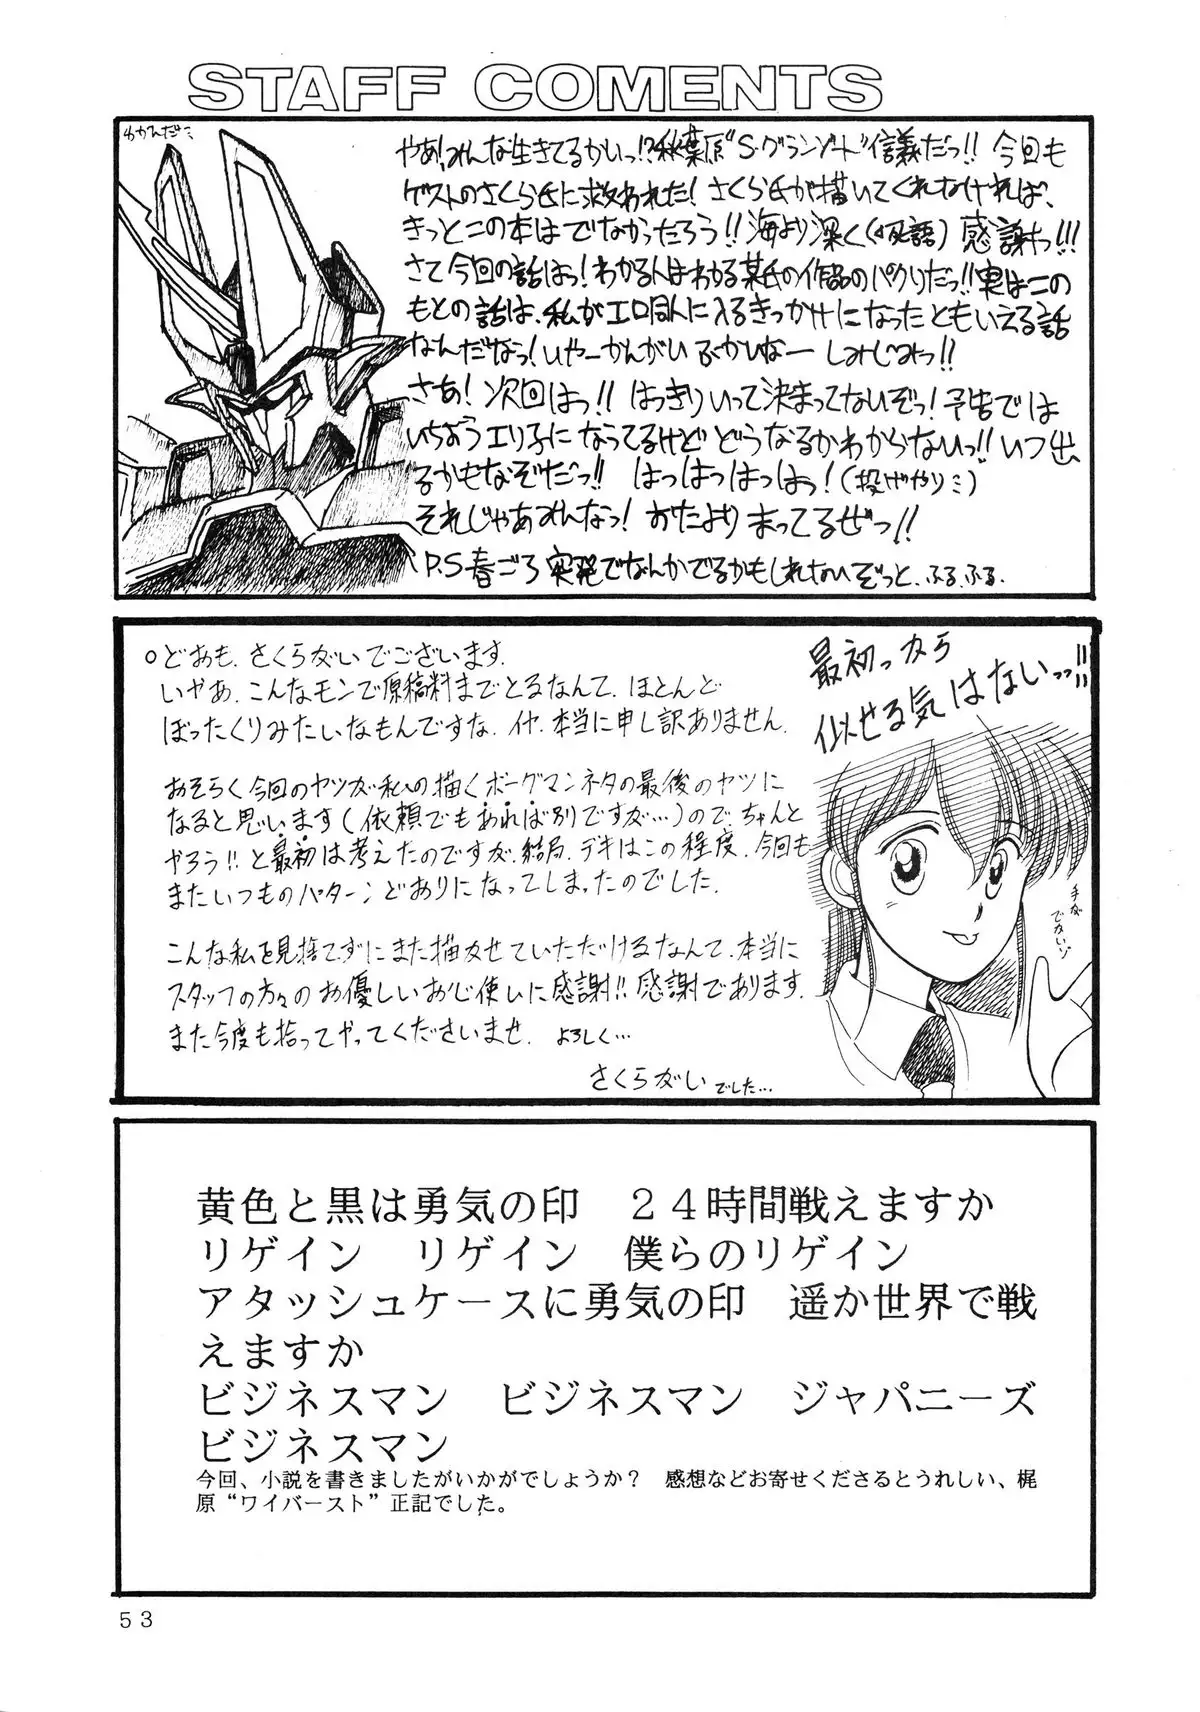 STAFF COMENTS
やあ!みんな生きてるかいっ!?秋葉原"S・グランゾート"信義だっ!! 今回も
ゲストのさくら氏に救われた! さくら氏が描いてくれなければ、
きっとこの本はでなかったろう!! 海より深く(死語) 感謝っ!!!
さて今回の話はっ! わかる人はわかる某氏の作品のパクりだっ!! 実はこの
もとの話は、私がエロ同人に入るきっかけになったともいえる話
なんだなっ! いやーかんがいぶかいなー しみじみっ!!
さあ! 次回はっ!! はっきりいって決まってないぞっ! 予告では
いちおうエリ子になってるけどどうなるかわからないっ!! いつ出
るかもなぞだっ!! はっはっはっはっ! (投げやりミ)
それじゃあみんなっ! おたよりまってるぜっ!!
P.S 春ごろ突発でなんかでるかもしれないぞっと、ふるふる.
どあも、さくらがいでございます.
いやあ、こんなモンで原稿料までとるなんて、ほとんど
ぼったくりみたいなもんですな. イヤ、本当に申し訳ありません.
おそらく今回のヤツが私の描くボーグマンネタの最後のヤツに
なると思います(依頼でもあれば別ですが…)ので、ちゃんと
やろう!! と最初は考えたのですが、結局、デキはこの程度、今回も
またいつものパターンどありになってしまったのでした.
こんな私を見捨てずにまた描かせていただけるなんて、本当に
スタッフの方々のお優しいお心使いに感謝!! 感謝であります.
また今度も拾ってやってくださいませ. よろしく…
さくらがい でした…
最初っから
似せる気はないっっ!!
手が
でないゾ
黄色と黒は勇気の印 24時間戦えますか
リゲイン リゲイン 僕らのリゲイン
アタッシュケースに勇気の印 遥か世界で戦
えますか
ビジネスマン ビジネスマン ジャパニーズ
ビジネスマン
今回、小説を書きましたがいかがでしょうか? 感想などお寄せくださるとうれしい、梶
原“ワイバースト”正記でした。
53